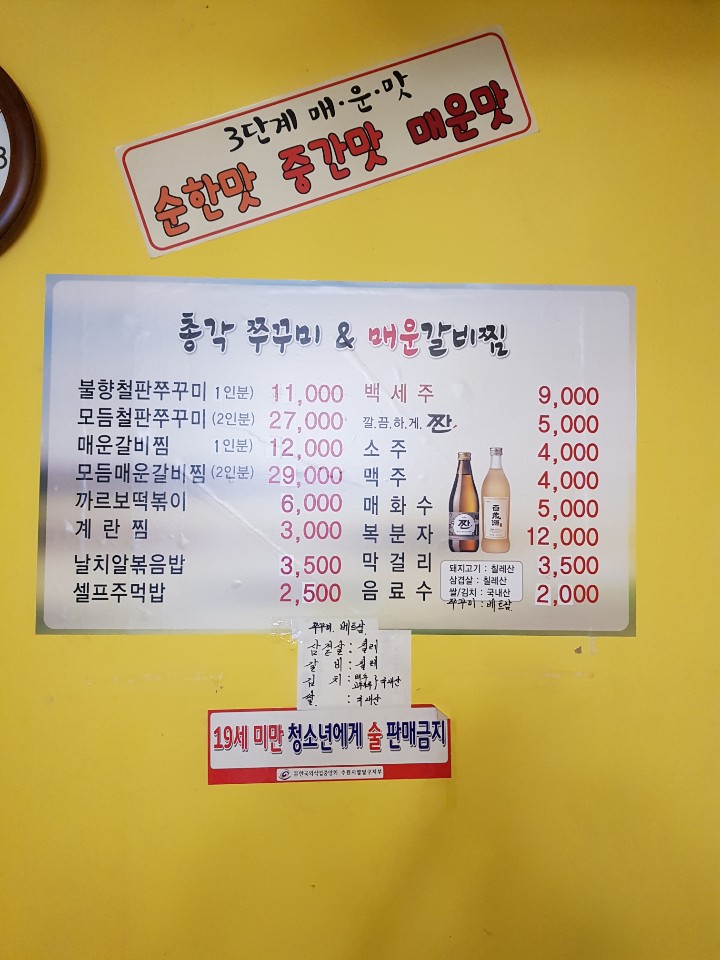 3
3단계 매·운·맛
순한맛 중간맛 매운맛
총각 쭈꾸미 & 매운갈비찜
불향철판쭈꾸미 1인분) 11,000
모듬철판쭈꾸미 (2인분) 27,000
매운갈비찜 1인분) 12,000
모듬매운갈비찜 (2인분) 29,000
까르보떡볶이 6,000
계란찜 3,000
날치알볶음밥 3,500
셀프주먹밥 2,500
백세주 9,000
깔.끔.하.게. 짠. 5,000
소주 4,000
맥주 4,000
매화수 5,000
복분자 12,000
막걸리 3,500
음료수 2,000
짠
百歲酒
돼지고기 : 칠레산
삼겹살 : 칠레산
쌀/김치 : 국내산
쭈꾸미 : 베트남
쭈꾸미. 베트남
삼겹살 : 칠레
갈비 : 칠레
김치 : 배추 고추가루 / 국내산
쌀 : 국내산
19세 미만 청소년에게 술 판매금지
한국외식업중앙회 수원시팔달구지부